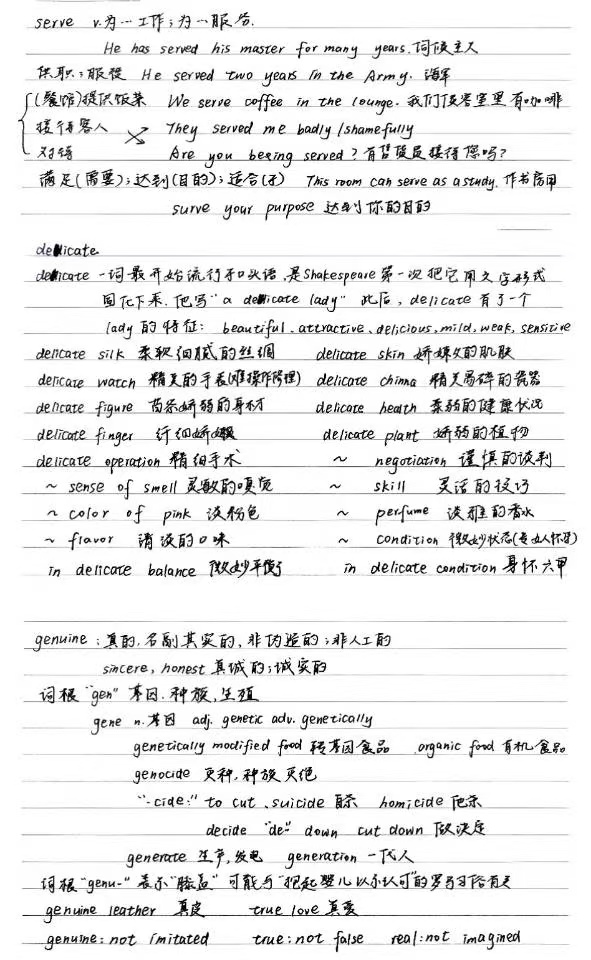 serve v.为…工作;为…服务.
He has served his master for many years. 伺候主人
供职;服役 He served two years in the Army. 海军
(餐馆)提供饭菜 We serve coffee in the lounge. 我们侯客室里有咖啡
接待客人 They served me badly/shamefully
对待 Are you bexing served? 有售货员接待您吗?
满足(需要);达到(目的);适合(于) This room can serve as a study. 作书房用
surve your purpose 达到你的目的
delicate.
delicate 一词最开始流行于口头语,是Shakespeare第一次把它用文字形式
固化下来.他写"a delicate lady" 此后,delicate有了一个
lady的特征: beautiful.attractive.delicious,mild,weak,sensitive
delicate silk 柔软细腻的丝绸 delicate skin 娇嫩的肌肤
delicate watch 精美的手表(难操作修理) delicate chinna 精美易碎的瓷器
delicate figure 苗条娇弱的身材 delicate health 柔弱的健康状况
delicate finger 纤细娇嫩 delicate plant 娇弱的植物
delicate operation 精细手术 ~ negotiation 谨慎的谈判
~ sense of smell 灵敏的嗅觉 ~ skill 灵活的技巧
~ color of pink 淡粉色 ~ perfume 淡雅的香水
~ flavor 清淡的口味 ~ condition 微妙状态(女人怀孕)
in delicate balance 微妙平衡 in delicate condition 身怀六甲
genuine:真的.名副其实的,非伪造的;非人工的
sincere, honest 真诚的;诚实的
词根"gen" 基因.种族,生殖
gene n.基因 adj. genetic adv. genetically
genetically modified food 转基因食品 .organic food 有机食品
genocide 灭种.种族灭绝
"-cide:" to cut .suicide 自杀 homicide 他杀
decide "de-" down cut down 做决定
generate 生产,发电 generation 一代人
词根"genu-"表示"膝盖" 可能与"抱起婴儿以示认可"的罗马习俗有关
genuine leather 真皮 true love 真爱
genuine: not imitated true: not false real: not imagined